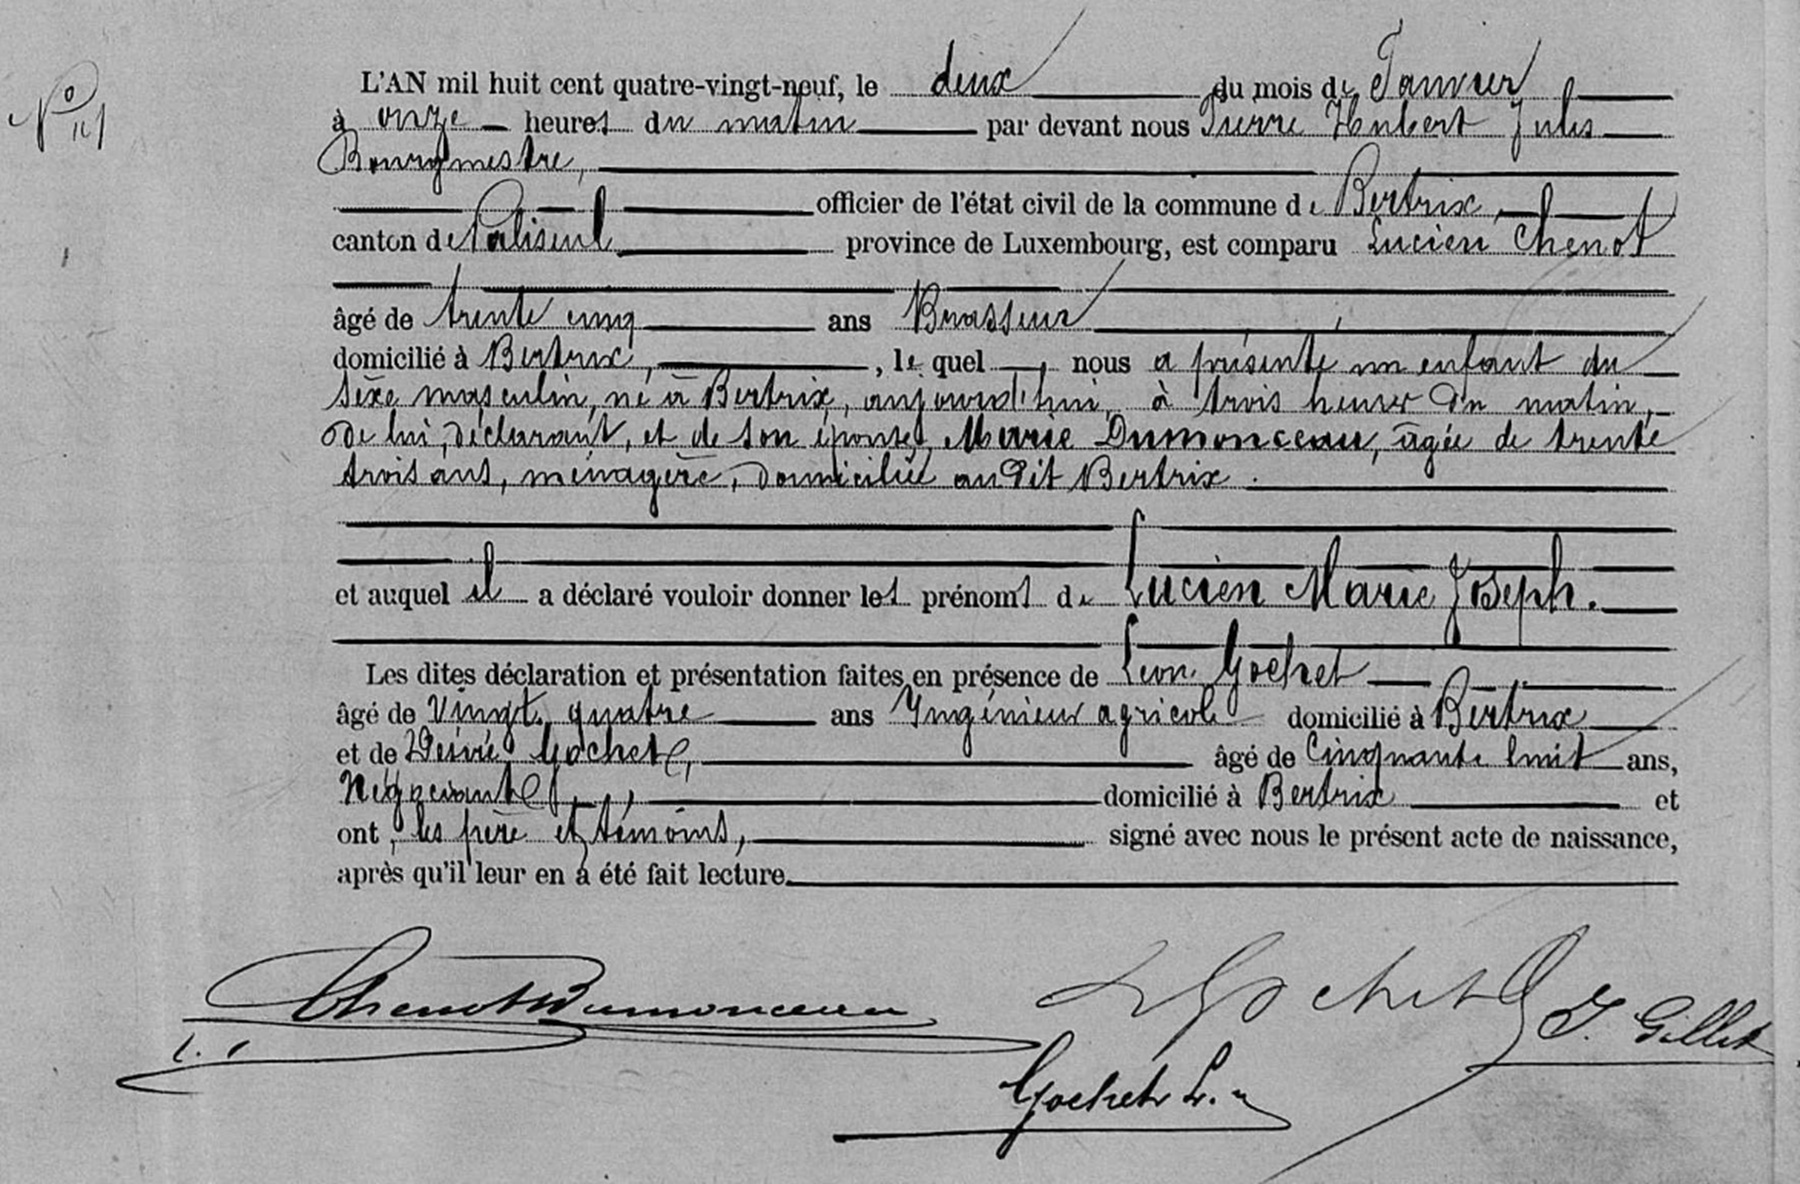 N° 1
L'AN mil huit cent quatre-vingt-neuf, le deux du mois de Janvier
à onze heures du matin par devant nous Pierre Hubert Jules
Bourgmestre,
officier de l'état civil de la commune de Bertrix,
canton de Paliseul province de Luxembourg, est comparu Lucien Chenot
âgé de trente cinq ans Brasseur
domicilié à Bertrix, , le quel , nous a présenté un enfant du
sexe masculin, né à Bertrix, aujourd'hui, à trois heures du matin,
de lui, déclarant, et de son épouse, Marie Dumonceau, âgée de trente
trois ans, ménagère, domiciliée au dit Bertrix.
et auquel il a déclaré vouloir donner les prénoms de Lucien Marie Joseph.
Les dites déclaration et présentation faites en présence de Léon Gochet
âgé de Vingt quatre ans Ingénieur agricole domicilié à Bertrix
et de Désiré Gochet, âgé de Cinquante huit ans,
Négociant, domicilié à Bertrix et
ont, les père et témoins, signé avec nous le présent acte de naissance,
après qu'il leur en a été fait lecture.
Chenot Dumonceau
Gochet
J. Gillet
Gochet L.